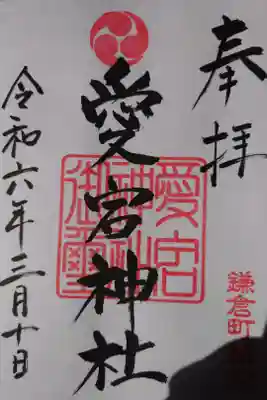 奉拝
愛宕神社
愛宕神社御璽
鎌倉町
令和六年三月十日